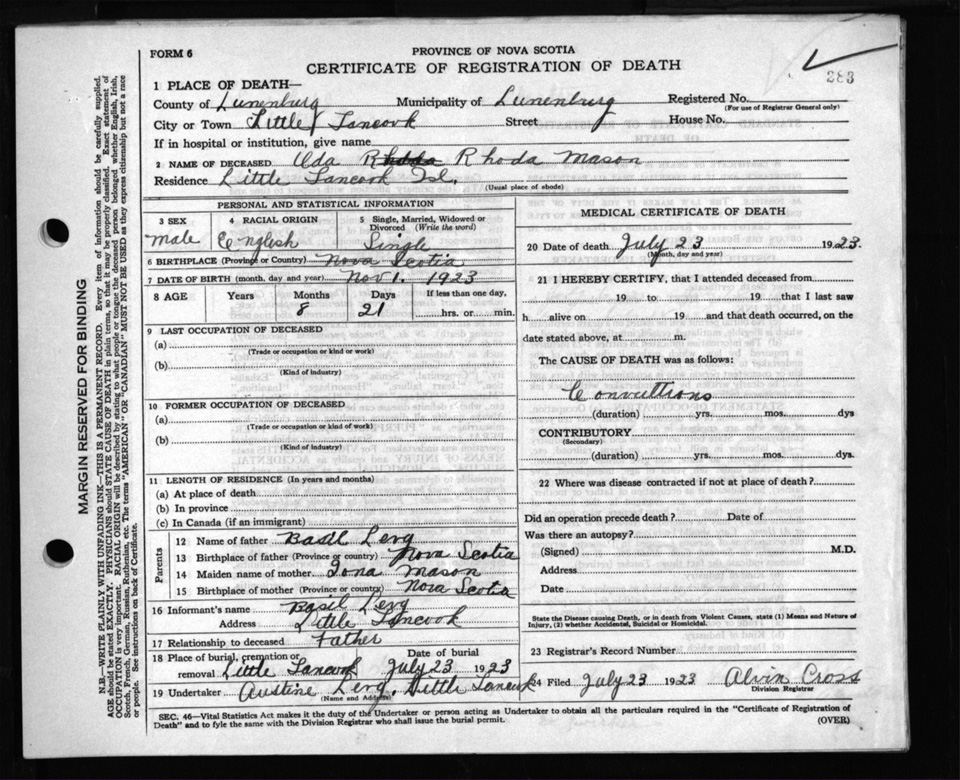 283
FORM 6
PROVINCE OF NOVA SCOTIA
CERTIFICATE OF REGISTRATION OF DEATH
1 PLACE OF DEATH—
County of Lunenburg Municipality of Lunenburg Registered No.
(For use of Registrar General only)
City or Town Little Tancook Street House No.
If in hospital or institution, give name
2 NAME OF DECEASED Ada Rhoda Rhoda Mason
Residence Little Tancook Isl. (Usual place of abode)
PERSONAL AND STATISTICAL INFORMATION
3 SEX 4 RACIAL ORIGIN 5 Single, Married, Widowed or Divorced (Write the word)
Male English Single
6 BIRTHPLACE (Province or Country) Nova Scotia
7 DATE OF BIRTH (month, day and year) Nov 1. 1923
8 AGE Years Months Days If less than one day,
8 21 hrs. or min.
9 LAST OCCUPATION OF DECEASED
(a)
(Trade or occupation or kind or work)
(b)
(Kind of industry)
10 FORMER OCCUPATION OF DECEASED
(a)
(Trade or occupation or kind or work)
(b)
(Kind of industry)
11 LENGTH OF RESIDENCE (In years and months)
(a) At place of death
(b) In province
(c) In Canada (if an immigrant)
Parents
12 Name of father Basil Levy
13 Birthplace of father (Province or country) Nova Scotia
14 Maiden name of mother Iona Mason
15 Birthplace of mother (Province or country) Nova Scotia
16 Informant's name Basil Levy
Address Little Tancook
17 Relationship to deceased Father
18 Place of burial, cremation or removal Little Tancook Date of burial July 23 1923
19 Undertaker Austine Levy, Little Tancook
(Name and Address)
MEDICAL CERTIFICATE OF DEATH
20 Date of death July 23 1923.
(Month, day and year)
21 I HEREBY CERTIFY, that I attended deceased from
19 to 19 that I last saw
h alive on 19 and that death occurred, on the
date stated above, at m.
The CAUSE OF DEATH was as follows:
Convultions
(duration) yrs. mos. dys
CONTRIBUTORY
(Secondary)
(duration) yrs. mos. dys.
22 Where was disease contracted if not at place of death?
Did an operation precede death? Date of
Was there an autopsy?
(Signed) M.D.
Address
Date
State the Disease causing Death, or in death from Violent Causes, state (1) Means and Nature of Injury, (2) whether Accidental, Suicidal or Homicidal.
23 Registrar's Record Number
24 Filed July 23 1923 Alvin Cross
Division Registrar
SEC. 46—Vital Statistics Act makes it the duty of the Undertaker or person acting as Undertaker to obtain all the particulars required in the "Certificate of Registration of
Death" and to fyle the same with the Division Registrar who shall issue the burial permit. (OVER)
MARGIN RESERVED FOR BINDING
N.B.—WRITE PLAINLY WITH UNFADING INK—THIS IS A PERMANENT RECORD. Every item of information should be carefully supplied.
AGE should be stated EXACTLY. PHYSICIANS should STATE CAUSE OF DEATH in plain terms, so that it may be properly classified. Exact statement of
OCCUPATION is very important. RACIAL ORIGIN will be described by stating to what people or tongue the deceased person belonged whether English, Irish,
Scotch, French, German, Russian, Ruthenian, etc. The terms "AMERICAN" or "CANADIAN" MUST NOT BE USED as they express citizenship but not a race
or people. See instructions on back of Certificate.